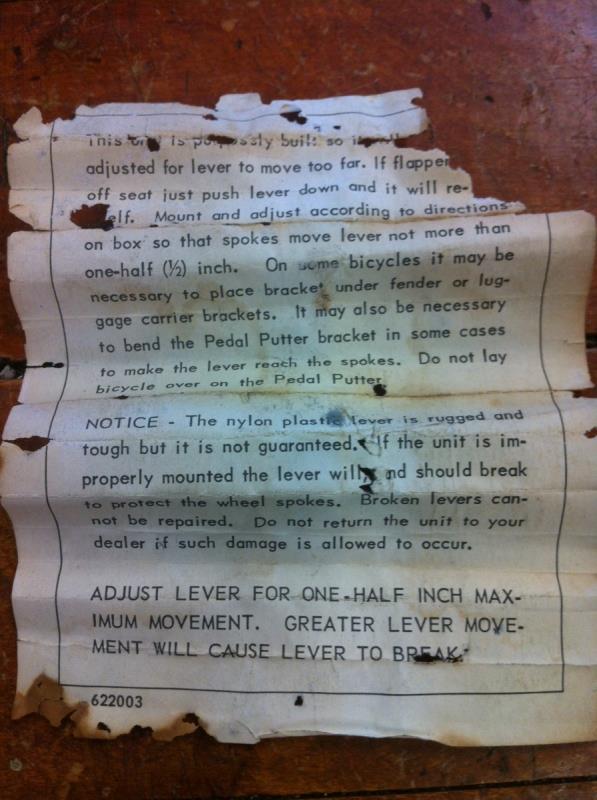 This unit is purposely built so it
adjusted for lever to move too far. If flapper
off seat just push lever down and it will re-
elf. Mount and adjust according to directions
on box so that spokes move lever not more than
one-half (½) inch. On some bicycles it may be
necessary to place bracket under fender or lug-
gage carrier brackets. It may also be necessary
to bend the Pedal Putter bracket in some cases
to make the lever reach the spokes. Do not lay
bicycle over on the Pedal Putter
NOTICE - The nylon plastic lever is rugged and
tough but it is not guaranteed. If the unit is im-
properly mounted the lever will nd should break
to protect the wheel spokes. Broken levers can-
not be repaired. Do not return the unit to your
dealer if such damage is allowed to occur.
ADJUST LEVER FOR ONE-HALF INCH MAX-
IMUM MOVEMENT. GREATER LEVER MOVE-
MENT WILL CAUSE LEVER TO BREAK.
622003